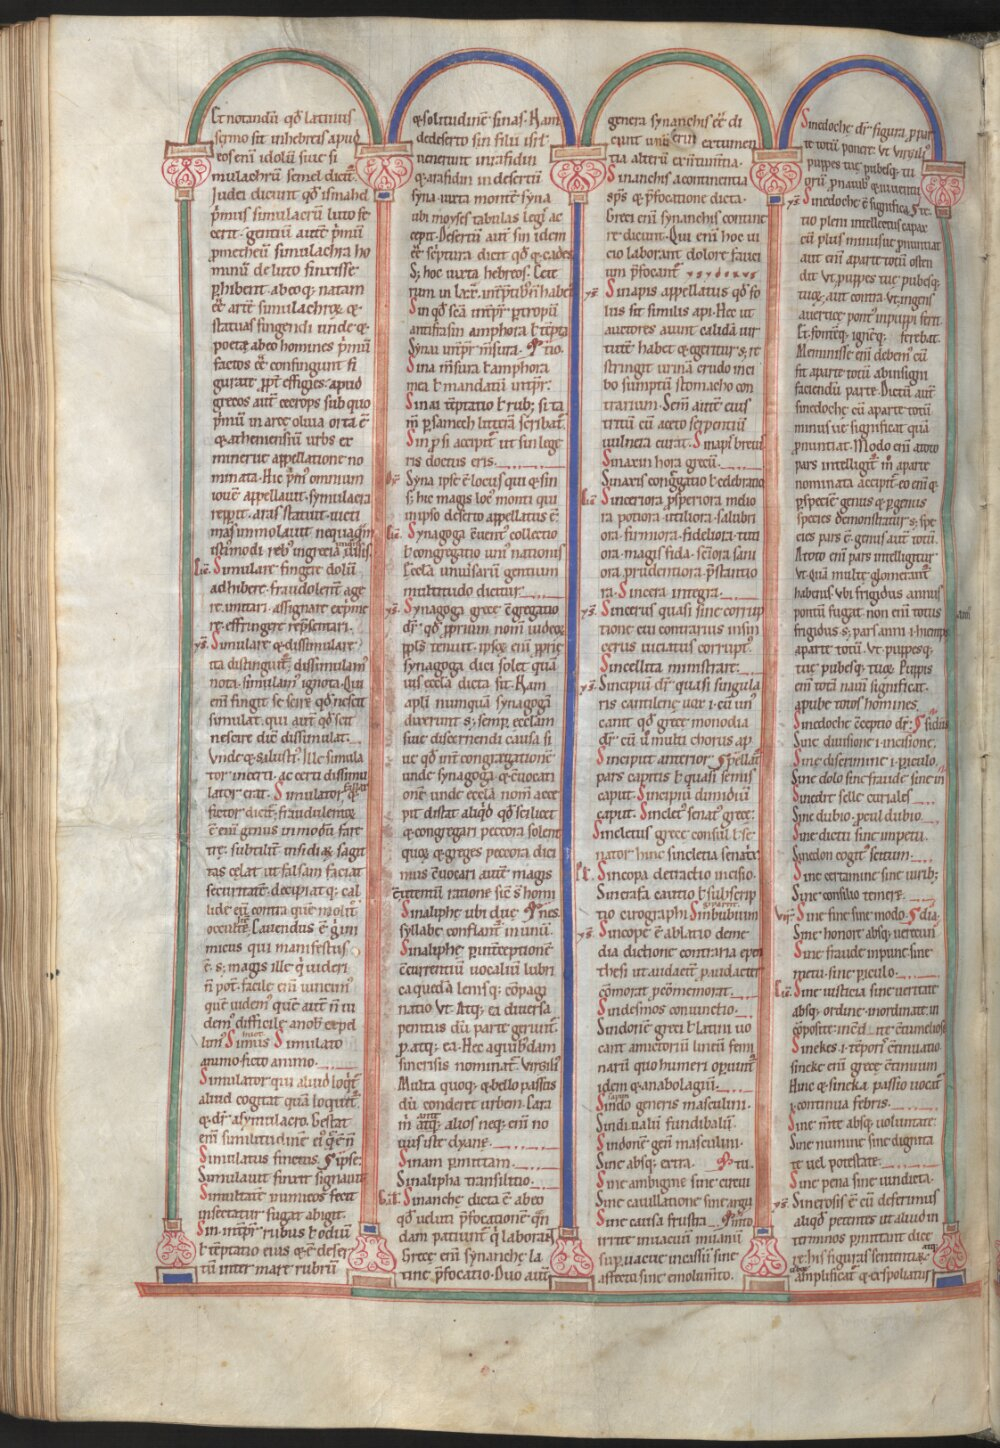 Et notandũ qđ latinus
sermo sit inhebreis apud
eos eni idolũ siue si
mulachrũ semel dicit̃.
Iudei dicunt qđ ismahel
p̃mus simulacrũ luto fe
cerit. gentiũ autẽ p̃mũ
prometheũ simulachra ho
minũ de luto finxisse
Phibent. abeoq; natam
ẽẽ artẽ simulachroꝝ &
statuas fingendi unde &
poetę abeo homines p̃mũ
factos ẽẽ confingunt fi
gurate ppt̃ effigies. apud
grecos aut̃ cecrops sub quo
p̃mũ in arce oliua orta ẽ
& atheniensiũ urbs ex
minerue appellatione no
minata. Hic p̃m̃ omnium
iouẽ appellauit. symulacra
repp̃it. aras statuit. uicti
mas immolauit nequaq̃m
istiusmodi reb; ingrecia uisis.
Simulare fingere dolũ
adhibere. fraudolent̃ age
re. imitari. assignare exp̃me
re. effringere rep̃sentari.
Simulare & dissimulare
ita distinguit̃; dissimulam̃
nota. simulam̃ ignota. Qui
eni fingit se scire qđ nescit
simulat. qui aut̃ qđ scit
nescire dic̃ dissimulat.
Vnde & salusti; Ille simula
tor incerti. ac certi dissimu
lator erat. Simulator &
fictor dicit̃. fraudulentꝰ
ẽ enĩ genus in modũ fare
trę; subtiliũ insidiaꝝ sagit
tas celat ut falsam faciat
securitatẽ. decipiatq; cal
lide eũ contra quẽ molit̃
occulte. Cauendus ẽ ḡ ini
micus qui manifestus
ẽ. s; magis ille q̃ uideri
ñ pot̃. facile enĩ uincim̃
quẽ uidem̃ quẽ aut̃ ñ ui
dem̃ difficile anob̃ expel
lim̃ Simus Simulato
animo ficto animo.
Simulator qui aliud loq̃t̃
aliud cogitat quã loquit̃.
& dr̃ asymilacro. Gestat
eni similitudinẽ ei q̃ ẽ ñ
Simulatus fincttus. ipse.
Simulauit finxit signauit
Simultatũ inimicos fecit
insectatur fugat abigit.
Sin int̃pr̃ rubus ł odiũ
ł tẽptatio eius & ẽ deser
tũ inter mare rubrũ
& solitudinẽ sinas. Nam
dedeserto sin filii isrł
uenerunt inrafidin
& arafidin in desertũ
syna iuxta montẽ syna
ubi moyses tabulas legis ac
cepit. Desertũ aut̃ sin idem
ẽẽ sc̃ptura dicit qđ & cades
S; hoc iuxta hebreos. Ceit
rum in lxx. int̃p̃tib; ñ habet
Sin qđ scã int̃pr̃ p tropũ
antifrasin amphora ł tẽpta
Synai int̃pr̃ m̃sura. tio.
Sina m̃sura ł amphora
mea ł mandatũ int̃pr̃.
Sinai tẽptatio ł rub; si ta
m̃ p samech litterã scribat̃.
Sin p si accipit̃ ut sin lege
ris doctus eris.
Syna ipse ẽ locus qui & sin
s; hic magis loc̃ monti qui
in ipso deserto appellatus ẽ.
Synagoga cuent̃ collectio
ł congregatio uni nationis
Eccła uniuisarũ gentium
multitudo dicitur.
Synagoga grece cgregatio
dr̃. qđ pprium nom̃ iudeoꝝ
ppłs tenuit. ipsoꝝ eni pprie
synagoga dici solet quã
uis eccła dicta sit. Nam
apłi nunquã synagogã
dixerunt s; semp eccłam
siue discernendi causa si
ue qđ int̃ congregationẽ
unde synagoga & cuocati
onẽ unde eccła nom̃ acce
pit distat aliqđ qđ scilicet
& congregari peccora solent
quoꝝ & greges peccora dici
mus cuocari autẽ magis
ẽ utentiũ ratione sic s̃ hom̃
Sinaliphę ubi duę nes.
syllabe conflant̃ in unũ.
Sinaliphę p int̃ceptionẽ
currentiũ uocaliũ lubri
ca quedã lenisq; cõpagi
natio vt. Atq; ea diuersa
penitus dũ parte geruñt.
p atq; ea. Hec aquib;dam
sinerisis nominat̃. Virgil̃
Multa quoq; & bello passus
dũ conderet urbem. Cara
m̃ atq; alios neq; eni no
uus iste dyane.
Sinam p̃mittam.
Sinalipha transilitio.
Sinanchę dicta ẽ abeo
qđ ueluti p̃focationẽ q̃n
dam patiunt̃ q̃ laborañt
Grece eni synanchę la
tine p̃focatio. Duo aut̃
genera synanchis ẽẽ di
cunt unũ extumen
tia alterũ
Sinanchis acontinentia
sps̃ & p̃focatione dicta.
Greci eni synanchis contine
re dicunt. Qui eni hoc ui
cio laborant dolore fauci
um p̃focant̃
Sinapis appellatus qđ fo
liis sit similis api. Hec ut
auctores aiunt calidã uir
tutẽ habet & egeritur s; re
stringit urinã crudo inci
bo sumptũ stomacho con
trarium. Sem̃ autẽ eius
tritũ cũ aceto serpentiũ
uulnera curat. Sinapi breui
Sinaxin hora grecũ.
Sinaxis congregatio ł celebratio
Sinceriora psperiora melio
ra potiora utiliora salubri
ora firmiora fideliora tuti
ora magis fida. seniora sani
ora prudentiora p̃stantio
ra. Sincera integra.
Sincerus quasi sine corrup
tione cui contrarius insin
cerus uiciatus corrupt̃.
Sincellita ministrat.
Sincipiũ dr̃ quasi singula
ris cantilenę uox i. cũ un̓
canit qđ grece monodia
dr̃ cũ u̓ multi chorus ap
Sinciput anterior pellat̃
pars capitis ł quasi semis
caput. Sincipiũ dimidiũ
caput. Sinclet̃ senat̃ grece.
Sincletus grece consul ł se
nator hinc sincletia senatrix
Sincopa detractio incisio.
Sincrafa cautio ł subscrip
tio cirographi Sinbubium
Sincope ẽ ablatio deme
dia dictione contraria epen
thesi ut audacit̃ p audaciter
cõmorat p cõmemorat.
Sindesmos coniunctio.
Sindonẽ greci ł latini uo
cant amictoriũ lineũ femi
narũ quo humeri operiunt̃
idem & anabolagiũ.
Sindo generis masculini.
Sindi ualii fundibalũ.
Sindonẽ gen̓ masculini.
Sine absq; extra. tu.
Sine ambigine sine circui
Sine cauillatione sine argu
Sine causa frustra. m̃to
irrite inuacuũ inanũ
supuacue incassũ sine
affectu sine emolum̃to.
Sinedochę dr̃ figura p par
te totũ ponere. vt virgilĩ
puppes tuę pubesq; tu
orũ p nauib; & iuuentu
Sinedochę ẽ significatiʒ re
tio pleni intellectus capax
cũ plus minusue pnuntiat
aut eni aparte totũ osten
dit vt. puppes tuę pubesq;
tuoꝝ. aut contra vt. ingens
auertice pont̃ in puppi ferit.
Et. fontẽq; ignẽq; ferebat.
Meminisse eni debem̃ cũ
fit aparte totũ ab insigni
faciendũ parte. Dictũ aut̃
sinedochę cũ aparte totũ
minus ue significat quã
pnuntiat. Modo eni atoto
pars intelligit̃ m̃ aparte
nominata accipit̃. eo eni &
p speciẽ genus & p genus
species demonstratur s; spe
cies pars ẽ genus aut̃ totũ.
A toto eni pars intelligitur
vt. Quã multę glomerant̃
habemus vbi frigidus annus
pontũ fugat. non eni totus
frigidus s; pars anni i. hiemps
aparte totũ. Vt puppesq;
tuę pubesq; tuoꝝ. Puppis
eni totã nauiũ significat.
apube totos homines.
Sinedoche cceptio dr̃. sidiis
Sine diuisione i. incisione.
Sine discrimine i. piculo.
Sine dolo sine fraude sine in
Sinedre sellę curiales
Sine dubio. pcul dubio.
Sine dictu sine impetu.
Sinedon cogit̃ scitum.
Sine certamine sine uirib;
Sine consilio temere.
Sine fine sine modo. dia.
Sine honore absq; uerecun
Sine fraude inpune. sine
metu. sine piculo.
Sine iusticia sine ueritate
absq; ordine. inordinate. in
cõposite. inc
Sinekes i. tẽpor̃ ctinuatio
sineke eni grece ctinuum
Hinc & sineka passio uocat̃
& continua febris.
Sine m̃te absq; uoluntate.
Sine numine sine dignita
te uel potestate.
Sine pena sine uindicta.
Sincrosis ẽ cũ deserimus
aliqđ petentes ut aliud in
terminos p̃mittant dice
re. his figuras sententiaꝝ
amplificat̃ & exspoliatus